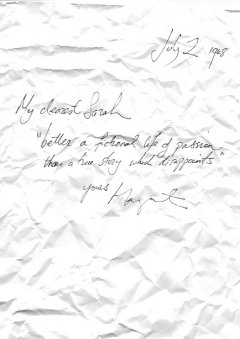 July 2 1908
My dearest Sarah
"better a fictional life of passion
than a true story which disappoints"
yours
Margaret